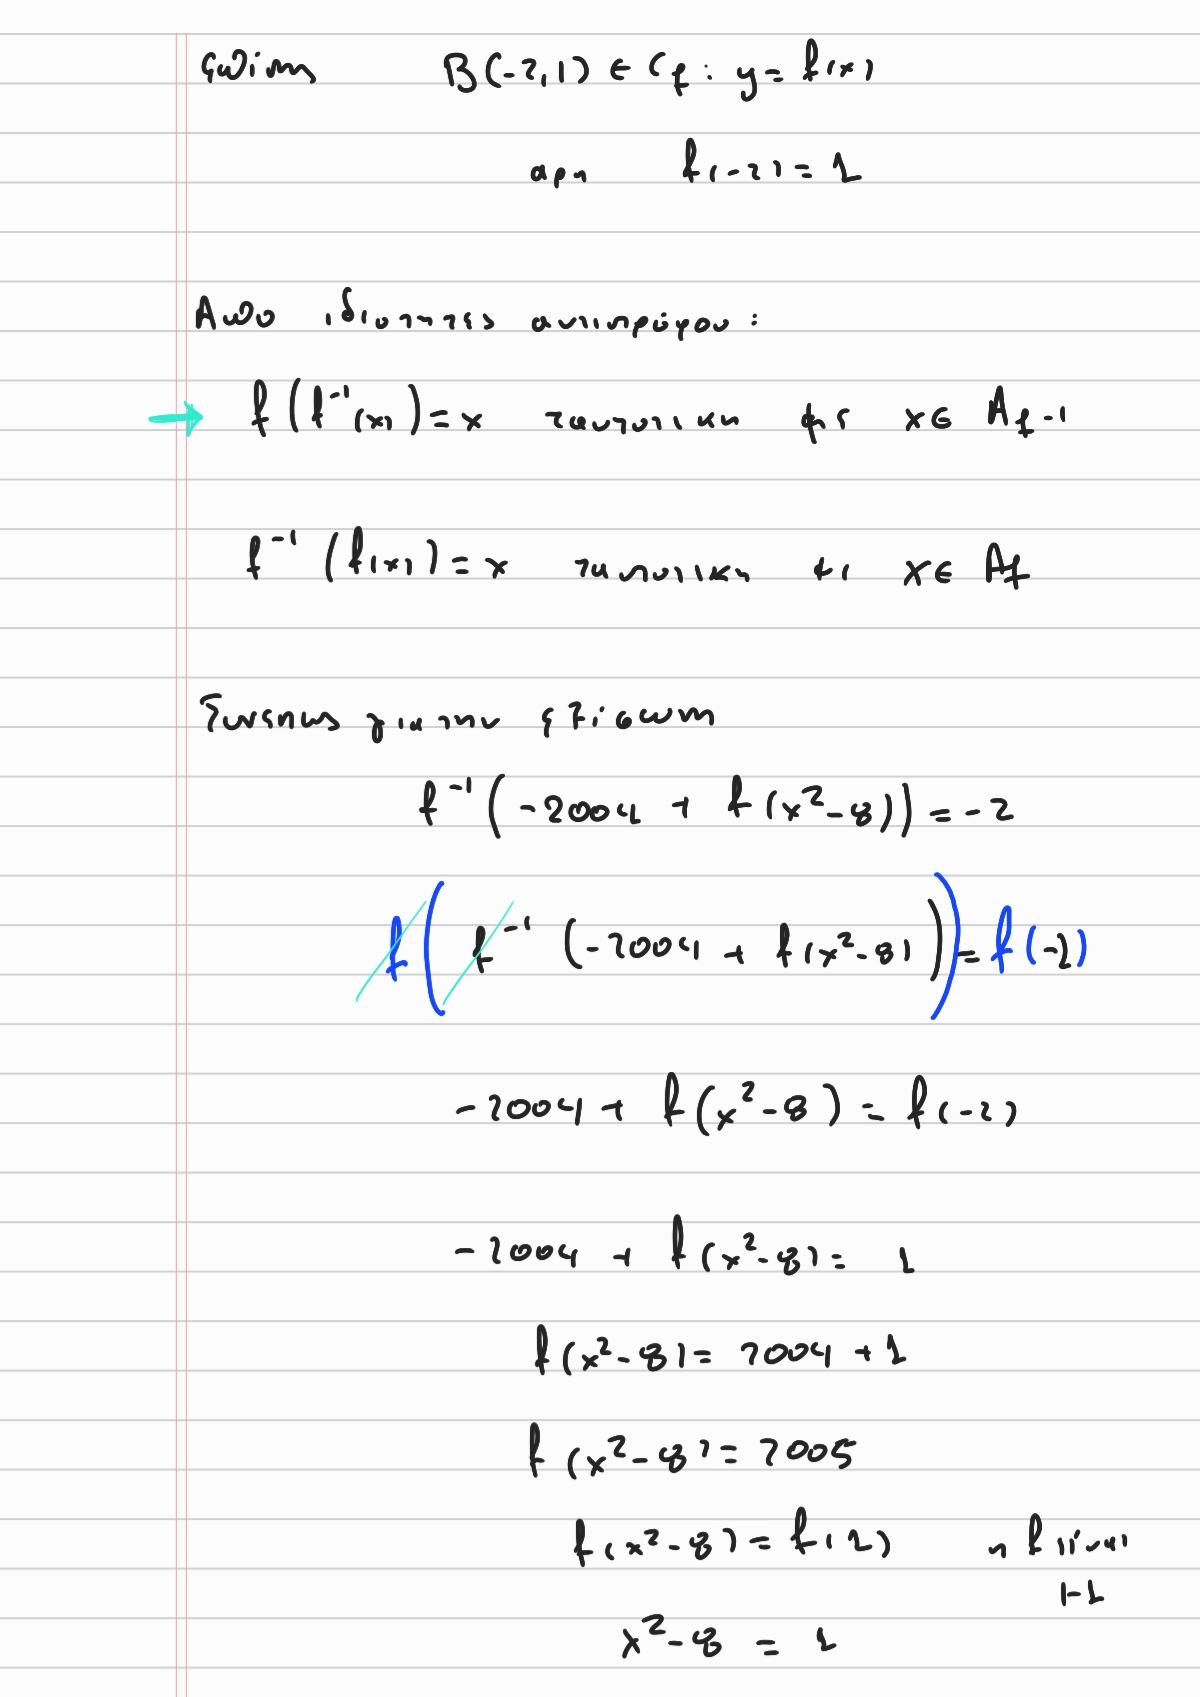 επίσης B(-2,1) ∈ C_f : y = f(x)
αρα f(-2) = 1
Απο ιδιοτητες αντιστρόφου :
→ f(f⁻¹(x)) = x x ∈ A_f⁻¹
f⁻¹(f(x)) = x x ∈ A_f
Συνεπως για την εξίσωση
f⁻¹(-2004 + f(x²-8)) = -2
f(f⁻¹(-2004 + f(x²-8))) = f(-2)
-2004 + f(x²-8) = f(-2)
-2004 + f(x²-8) = 1
f(x²-8) = 2004 + 1
f(x²-8) = 2005
f(x²-8) = f(1) η f είναι
1-1
x²-8 = 1